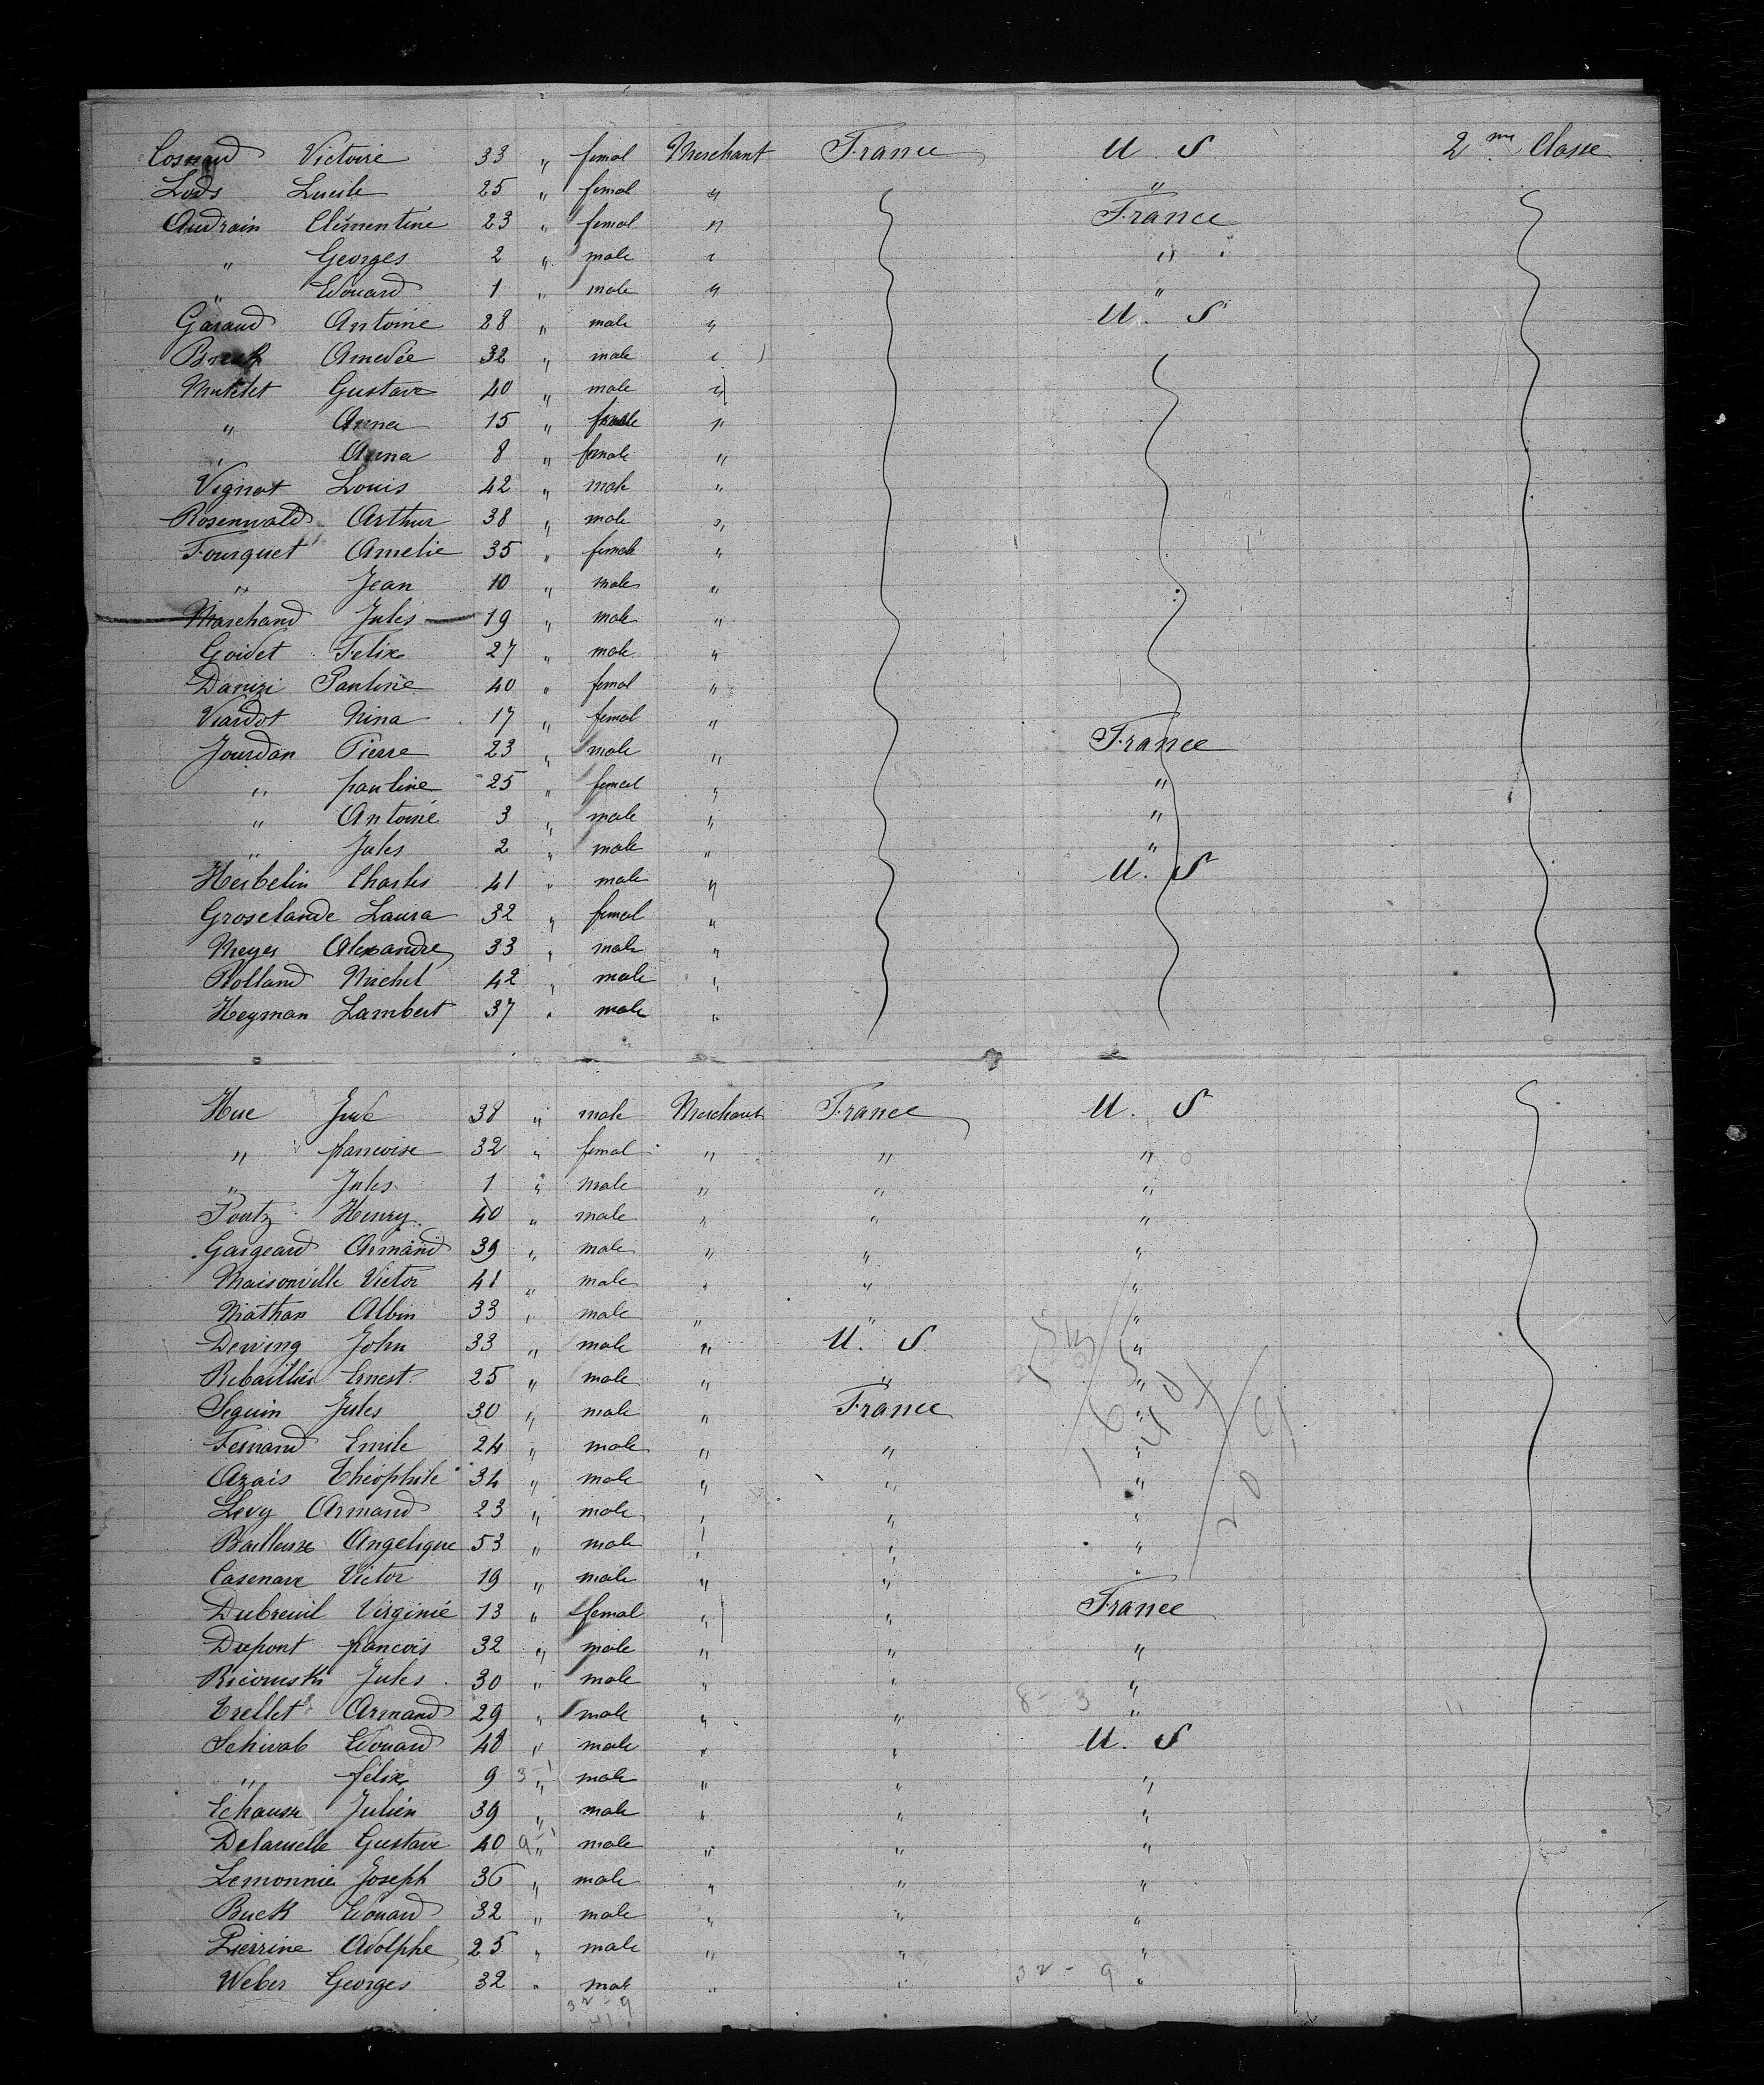 Cosnard Victoire 33 " femal Merchant France U. S 2me Classe
Lods Lucile 25 " femal " "
Audrain Clémentine 23 " femal " France
" Georges 2 " male " "
" Edouard 1 " male " "
Garaud Antoine 28 " male " U. S
Amedée 32 " male "
Mutelet Gustave 40 " male "
" Anna 15 " female "
" Anna 8 " female "
Vignot Louis 42 " male "
Rosenwald Arthur 38 " male "
Fourquet Amelie 35 " female "
" Jean 10 " male "
Marchand Jules 19 " male "
Goidet Felix 27 " male "
Danizi Pauline 40 " femal "
Viardot Nina 17 " femal "
Jourdan Pierre 23 " male " France
" pauline 25 " femal " "
" Antoine 3 " male " "
" Jules 2 " male " "
Herbelin Charles 41 " male " U. S
Groselande Laura 32 " femal "
Meyer Alexandre 33 " male "
Rolland Michel 42 " male "
Heyman Lambert 37 " male "
Hue Jude 38 " male Merchant France U. S
" francoise 32 " femal " " "
" Jules 1 " male " " "
Pontz Henry 40 " male " " "
Gargeard Armand 39 " male " " "
Maisonville Victor 41 " male " " "
Nathan Albin 33 " male " " "
Dewing John 33 " male " U. S "
Ernest 25 " male " " "
Seguin Jules 30 " male " France "
Fernand Emile 24 " male " " "
Azais Théophile 34 " male " " "
Levy Armand 23 " male " " "
Bailleux Angelique 53 " male " " "
Casenave Victor 19 " male " " "
Dubreuil Virginie 13 " femal " " France
Dupont francois 32 " male " " "
Jules 30 " male " " "
Trellet Armand 29 " male " " " 8-3
Schwab Edouard 48 " male " " U. S
" félix 9 " male " " "
Julien 39 " male " " "
Delaruelle Gustave 40 " male " " "
Lemonnie Joseph 36 " male " " "
Buck Edouard 32 " male " " "
Pierrine Adolphe 25 " male " " "
Weber Georges 32 " male " " 32-9 "
32-9